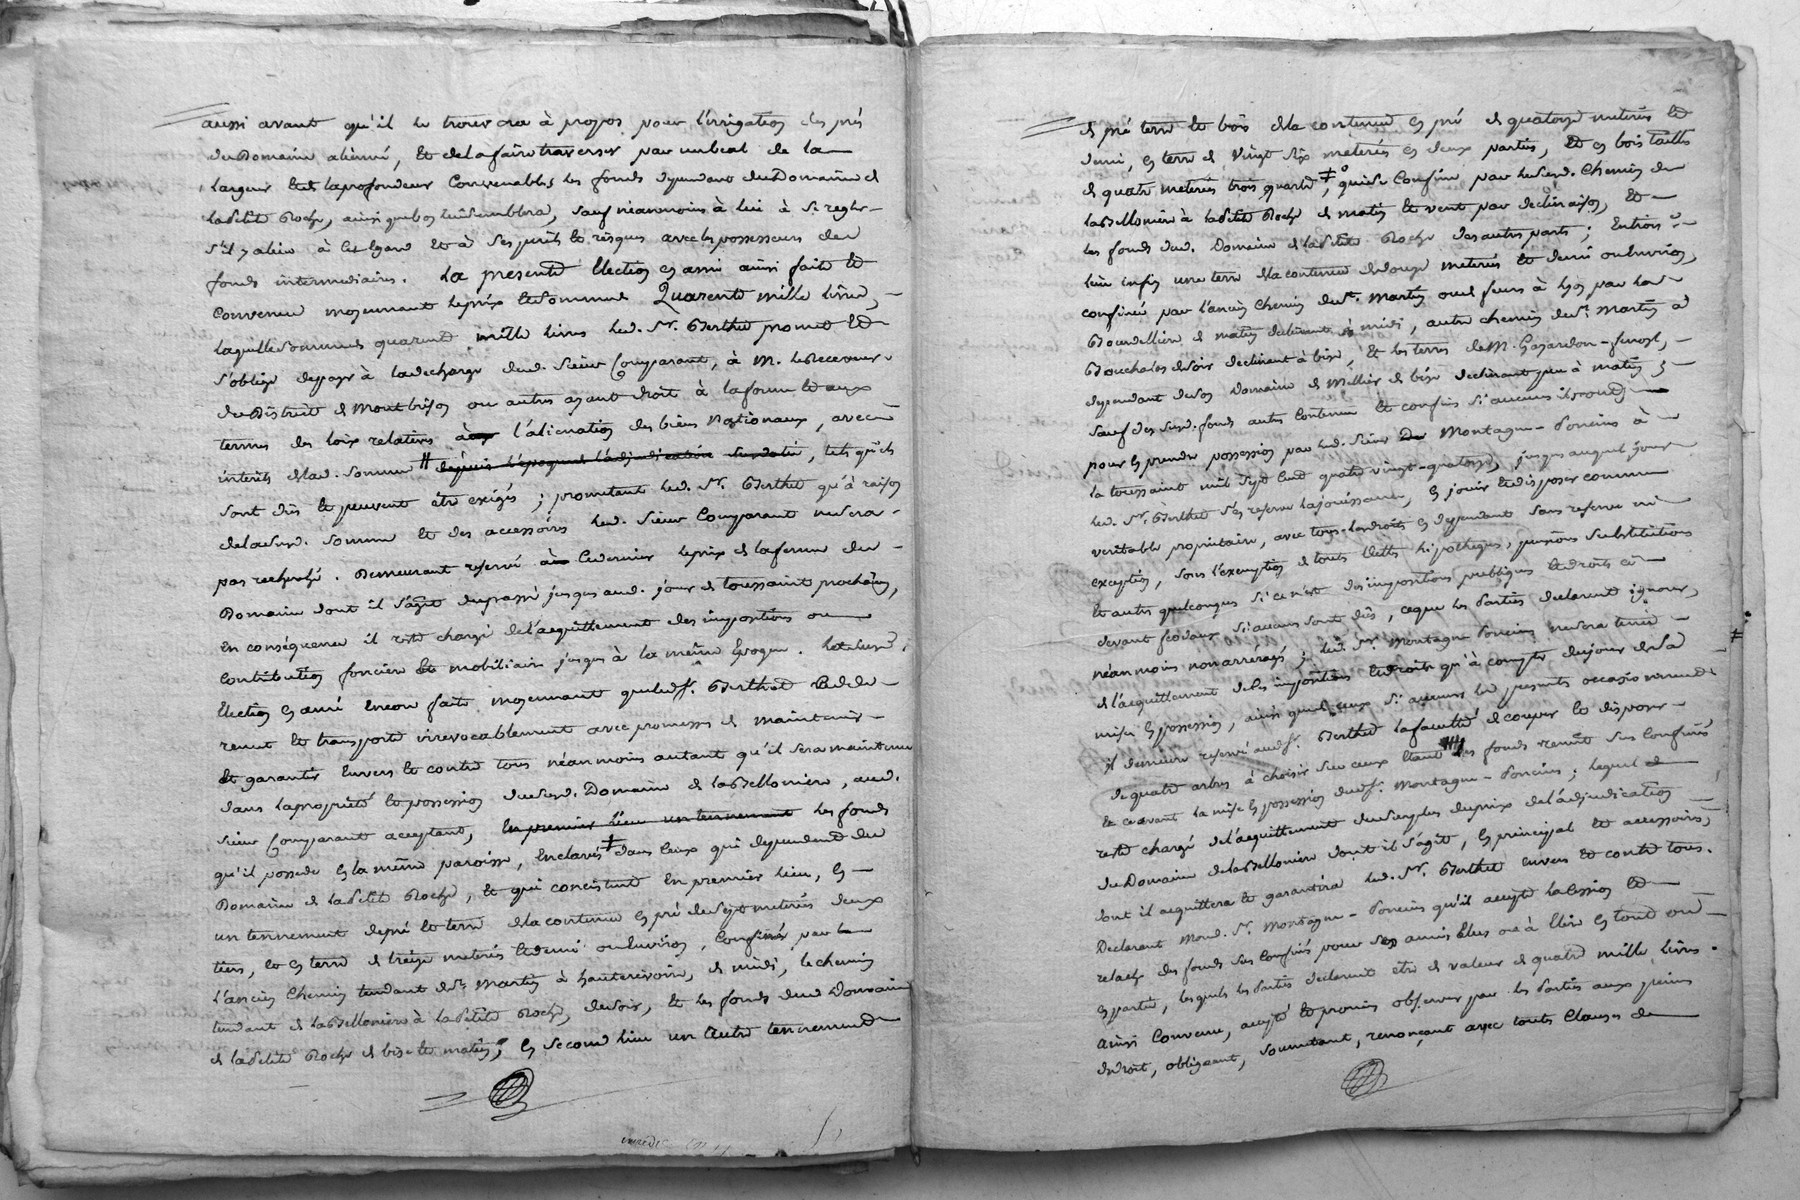 aussi avant qu'il le trouvera à propos pour l'irrigation des prés
du Domaine aliéné, Et de la faire traverser par un béal de la
largeur Et de la profondeur Convenables les fonds dépendant du Domaine de
la Petite Roche, ainsi que bon lui semblera, sauf néanmoins à lui à se regler
s'il y a lieu à cet Egard Et à ses perils et risques avec les possesseurs des
fonds intermediaires. La presente Election en ami ainsi faite Et
Convenue moyennant le prix Et somme de Quarente mille livres,
laquelle somme de quarente mille livres led. Sr. Berthet promet Et
s'oblige de payer à la decharge dud. Sieur Comparant, à M. le Receveur
du District de Montbrison ou autres ayant droit à la forme Et aux
termes des loix relatives à l'alienation des biens Nationaux, avec
interêts de lad. somme # depuis l'epoque de l'adjudication susdatée, tels qu'ils
sont dûs Et peuvent etre exigés ; promettant led. Sr. Berthet qu'à raison
de la susd. somme Et des accessoires led. Sieur Comparant ne sera
pas recherché. Demeurant reservé à ce dernier le prix de la ferme du
Domaine dont il s'agit du passé jusques aud. jour de toussaint prochain,
En conséquence il reste chargé de l'acquittement des impositions ou
Contribution fonciere Et mobiliaire jusques à la même Epoque. lad.
Election en ami Encore faite moyennant que led. Sr. Berthet Cede
remet Et transporte irrevocablement avec promesses de maintenir
Et garantir Envers Et contre tous néanmoins autant qu'il sera maintenu
dans la proprieté Et possession du susd. Domaine de la Bellonière, aud.
Sieur Comparant acceptant, En premier lieu un tennement les fonds
qu'il possede En la même paroisse, Enclavés ‡ dans Ceux qui dependent du
Domaine de la Petite Roche, Et qui consistent En premier lieu, En
un tennement de pré Et terre de la contenue En pré de sept meterées deux
tiers, Et En terre de treize meterées Et demi ou Environ, Confinés par
l'ancien Chemin tendant de St. Martin à hauterivoire, de midi, le chemin
tendant de la Bellonière à la Petite Roche, de soir, Et les fonds dud. Domaine
de la Petite Roche de bise Et matin ; En second lieu un autre tennement
de pré terre Et bois de la contenue En pré de quatorze meterées Et
demi, En terre de vingt six meterées En deux parties, Et En bois taillis
de quatre meterées trois quarts ‡, qui se Confine par le susd. Chemin de
la Bellonière à la Petite Roche de matin Et vent par declinaison, Et
les fonds dud. Domaine de la Petite Roche des autres parts ; En troisième
lieu enfin une terre de la contenue de douze meterées Et demi ou Environ,
confinée par l'ancien Chemin de St. Martin à Lyon par la
Bourdelliere de matin declinant à midi, autre chemin de St. Martin à
Bouchalas de soir declinant à bise, Et les terres de M. Gazardon,
dependant de son Domaine de Millier de bise declinant peu à matin ;
sauf des susd. fonds autre Contenue Et confins si aucuns il y a
pour En prendre possession par led. Sieur Montagne-Poncins à
la toussaint mil sept Cent quatre vingt-quatorze, jusques auquel jour
led. Sr. Berthet s'en reserve la jouissance, En jouir Et disposer comme
veritable proprietaire, avec tous les droits En dependant sans reserve ni
exception, sous l'exemption de toutes dettes hipotheques, pensions substitutions
Et autres quelconques si ce n'est des impositions publiques Et droits ci
devant feodaux si aucuns sont dûs, ce que les Parties declarent ignorer,
néanmoins non arréragés ; led. Sr. Montagne Poncins ne sera tenu
de l'acquittement de Ces impositions Et droits qu'à compter du jour de sa
mise En possession, ainsi que de ceux si aucuns les presentes occasionnent
il demeure reservé aud. Sr. Berthet la faculté de couper Et disposer
de quatre arbres à choisir sur ceux Etant les fonds remis sus Confinés
Et ce avant la mise En possession dud. Sr. Montagne-Poncins ; lequel
reste chargé de l'acquittement du surplus du prix de l'adjudication
du Domaine de la Bellonière dont il s'agit, En principal Et accessoires,
dont il acquittera Et garantira led. Sr. Berthet Envers Et contre tous.
Declarant mond. Sr. Montagne-Poncins qu'il accepte la Cession Et
relache des fonds sus Confinés pour ses amis Elus ou à Elire En tout ou
En partie, lesquels les Parties declarent etre de valeur de quatre mille livres.
Ainsi Convenu, accepté Et promis observer par les Parties aux peines
de droit, obligeant, soumettant, renonçant avec toutes Clauses de